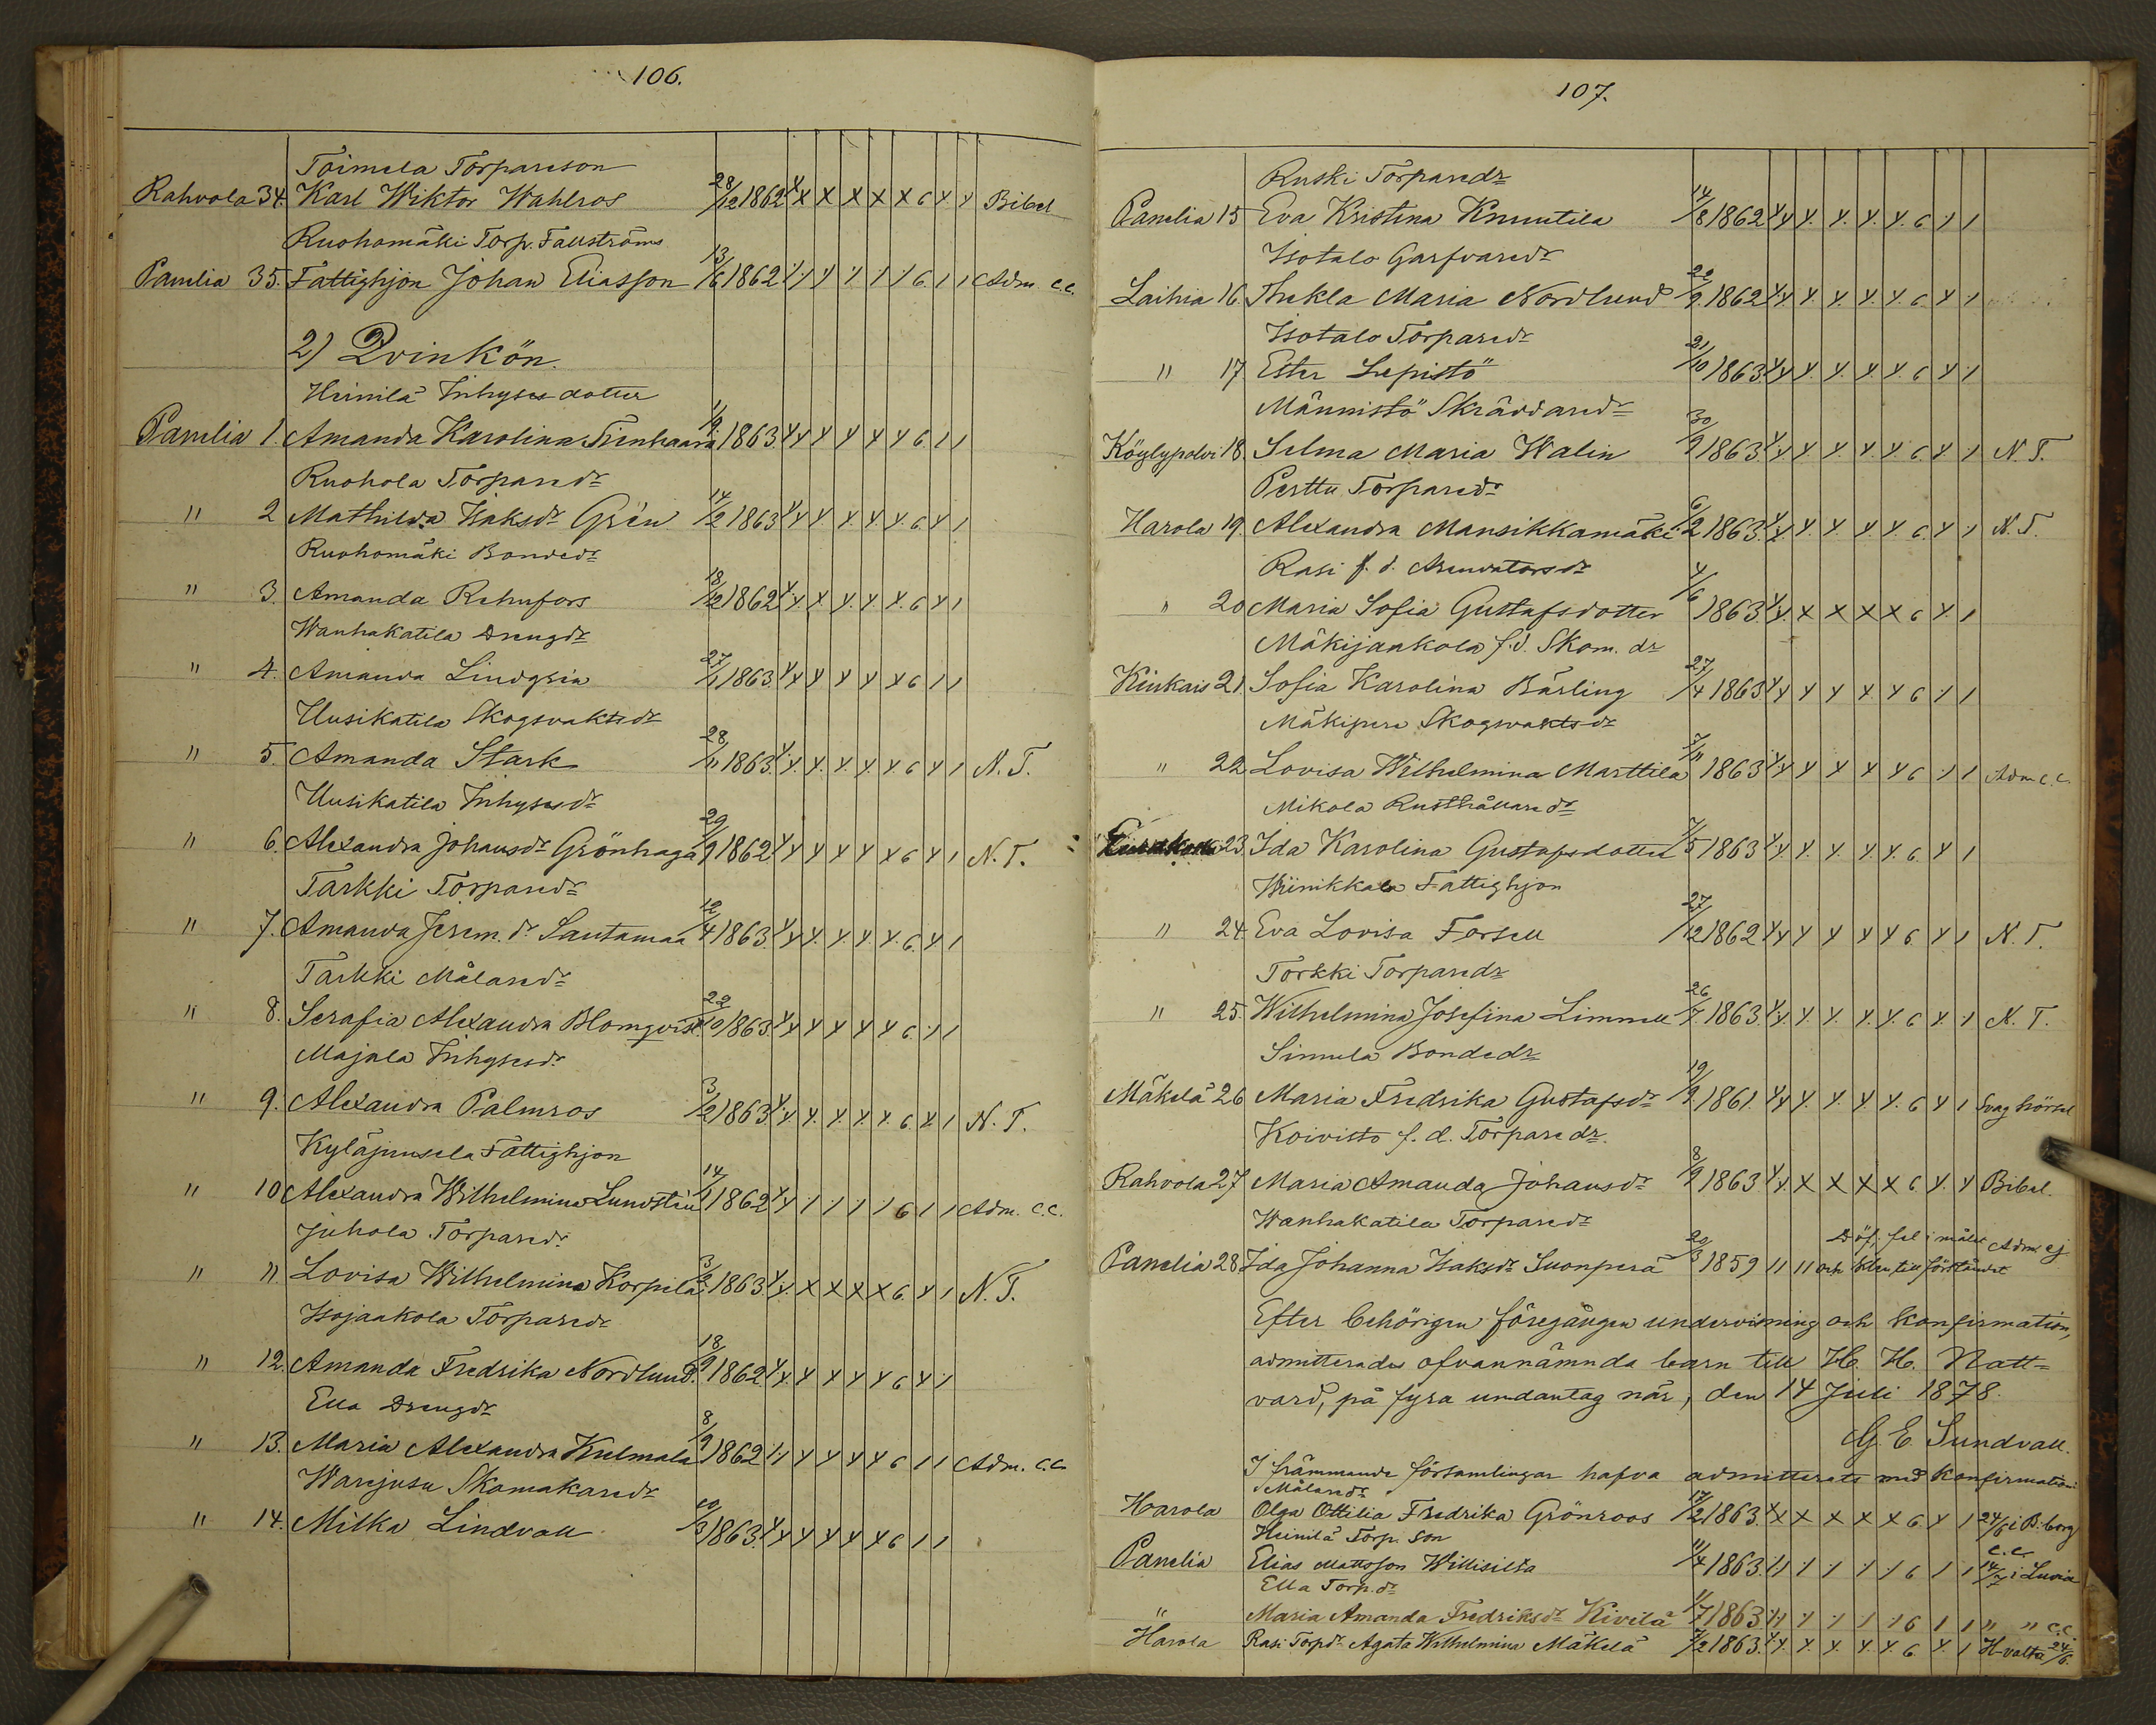 106.
Toimela Torpareson
Rahvola 34. Karl Wiktor Wahlros 28/12 1862 Y x x x x x 6 y y Bibel
Ruohomäki Torp. Fallströms
Panelia 35. Fattighjon Johan Eliasson 13/6 1862 6 1 1 Adm. c.c.
2) Qvinkön.
Heinilä Inhyses dotter
Panelia 1. Amanda Karolina 1/9 1863 6 1 1
Ruohola Torparedr
" 2 Mathilda Isaksdr Grén 14/2 1863 6 y 1
Ruohomäki Bondedr
" 3. Amanda Rehnfors 18/12 1862 6 y 1
Wanhakatila Drengdr
" 4. Amanda 27/1 1863. 6 1 1
Uusikatila Skogsvaktsdr
" 5. Amanda Stark 28/11 1863. 6 y 1 N. T.
Uusikatila Inhysesdr
" 6. Alexandra Johansdr Grönhaga 29/9 1862 6 y 1 N. T.
Tarkki Torparedr
" 7. Amanda Jerem. dr Santamaa 12/4 1863. 6. y 1
Tarkki Målaredr
" 8. Serafia Alexandra Blomqvist. 22/10 1863. 6. 1 1
Majala Inhysesdr
" 9. Alexandra Palmros 3/2 1863 6. y. 1 N. T.
Kyläjunsela Fattighjon
" 10 Alexandra Wilhelmina Lundstén 14/1 1862 6 1 1 Adm. c.c.
Juhola Torparedr
" 11 Lovisa Wilhelmina Korpela 3/2 1863 x x x x 6. y 1 N. T.
Isojaakola Torparedr
" 12. Amanda Fredrika Nordlund. 18/9 1862 6 y 1
Ella Drengdr
" 13. Maria Alexandra Kulmala 8/9 1862 6 1 1 Adm. c.c.
Warjusu Skomakaredr
" 14. Milka Lindvall 1863. 6 1 1
107.
Ruski Torparedr
Panelia 15 Eva Kristina Knuutila 14/8 1862 6 1 1
Isotalo Garfvaredr
Laihia 16. Thekla Maria Nordlund 22/9. 1862 6. y 1
Isotalo Torparedr
" 17 Ester Lepistö 21/10 1863. 6 y 1
Männistö Skräddaredr
Köylypolvi 18. Selma Maria Walin 30/9 1863. 6. y 1 N. T.
Perttu Torparedr
Harola 19. Alexandra Mansikkamäki 6/2 1863. 6. y 1 N. T.
Rasi f. d. Arendatorsdr
" 20 Maria Sofia Gustafsdotter 4/6 1863. x x x x 6 y. 1
Mäkijaakola f. d. Skom. dr
Kiukais 21. Sofia Karolina Bärling 27/4 1863 6 1 1
Mäkipere Skogsvaktsdr
" 22 Lovisa Wilhelmina Marttila 7/11 1863 6 1 1 Adm. c.c.
Mikola Rusthållaredr
23. Ida Karolina Gustafsdotter 7/5 1863 6. y 1
Wiinikkala Fattighjon
" 24. Eva Lovisa Forsell 27/12 1862 6. y 1 N. T.
Torkki Torparedr
" 25. Wilhelmina Josefina Limnell 26/7 1863. 6 y. 1 N. T.
Simula Bondedr
Mäkelä 26 Maria Fredrika Gustafsdr 19/9 1861. 6 y 1 Svag hörsel
Koivisto f. d. Torparedr.
Rahvola 27 Maria Amanda Johansdr 8/9 1863 x x x x 6 y. y Bibel.
Wanhakatila Torparedr
Panelia 28. Ida Johanna Isaksdr Suonperä 20/3 1859 11 11 Döf, fel i målet och klen till förståndet Adm. ej
Efter behörigen föregången undervisning och konfirmation,
admitterades ofvannämnda barn till H. H. Natt=
vard, på fyra undantag när, den 14 Juli 1878.
G. E. Sundvall.
I främmande församlingar hafva admitterats med konfirmation:
Målaredr
Harola Olga Ottilia Fredrika Grönroos 17/2 1863. x x x x 6. y 1 24/6 i B:borg
Heinilä Torp. son
Panelia Elias Mattsson Willisilta 11/4 1863. 6 1 1 c.c. 14/7 i Luvia
Ella Torp. dr
" Maria Amanda Fredriksdr Kivelä 1/7 1863. 6 1 1 " " c.c.
Harola Rasi Torpdr Agata Wilhelmina Mäkelä 7/2 1863. 6. y. 1 H-valta 24/6.